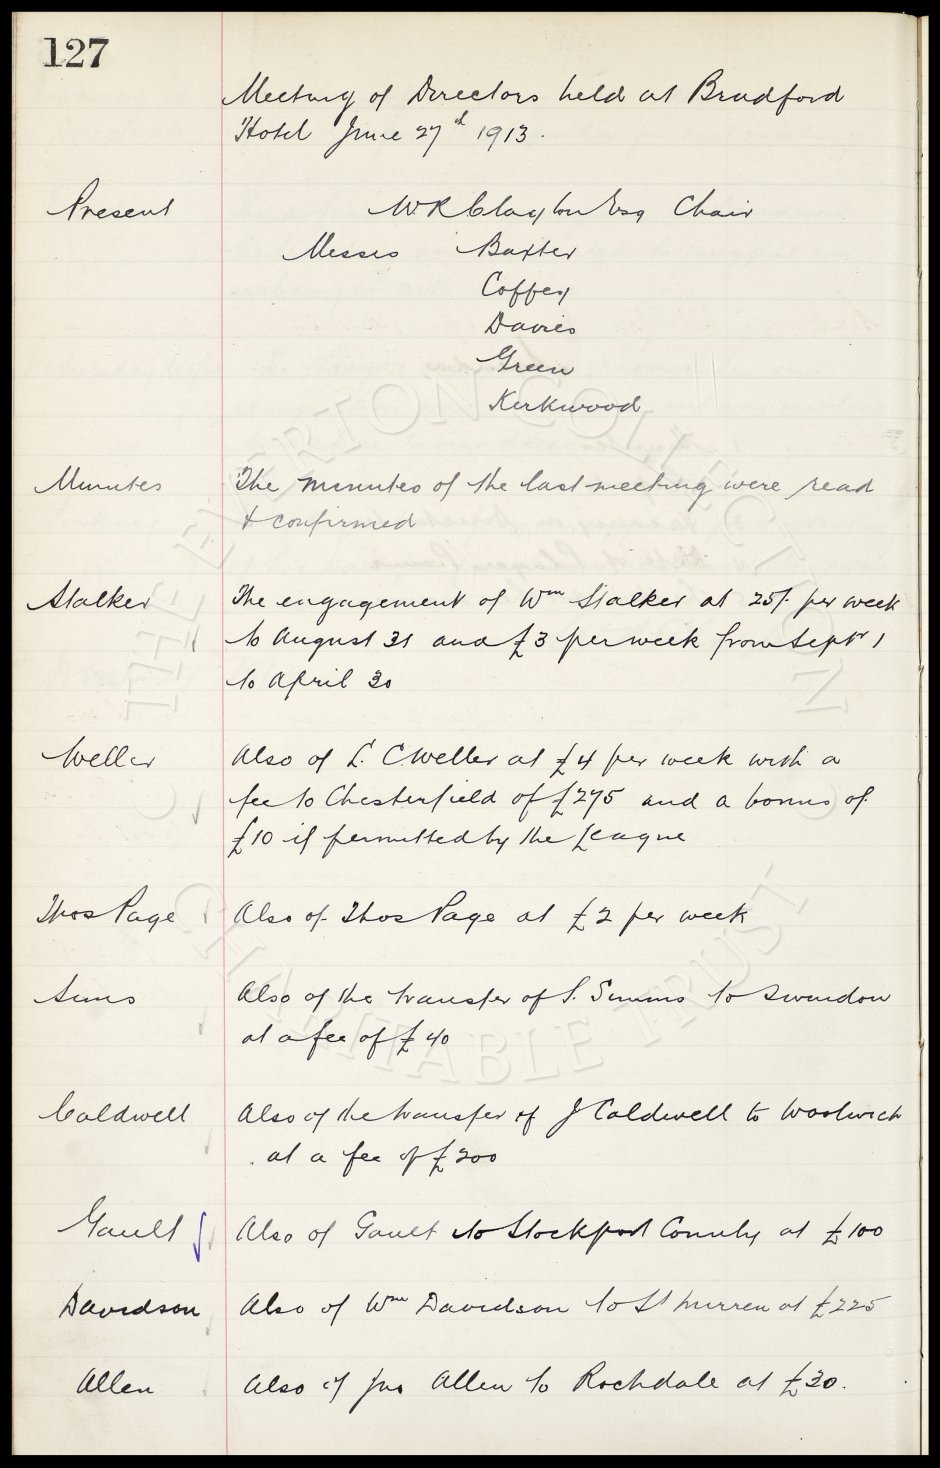 127
Meeting of Directors held at Bradford
Hotel June 27th 1913.
Present W R Clayton Esq Chair
Messrs Baxter
Coffey
Davies
Green
Kirkwood
Minutes The minutes of the last meeting were read
& confirmed
Stalker The engagement of Wm Stalker at 25/- per week
to August 31 and £3 per week from Septr 1
to April 30
Weller Also of L. C. Weller at £4 per week with a
fee to Chesterfield of £275 and a bonus of
£10 if permitted by the League
Thos Page Also of Thos Page at £2 per week
Sims Also of the transfer of S. Simms to Swindon
at a fee of £40
Caldwell Also of the transfer of J Caldwell to Woolwich
at a fee of £200
Gault Also of Gault to Stockport County at £100
Davidson Also of Wm Davidson to St Mirren at £225
Allen Also of Jno Allen to Rochdale at £30.
THE EVERTON COLLECTION
CHARITABLE TRUST